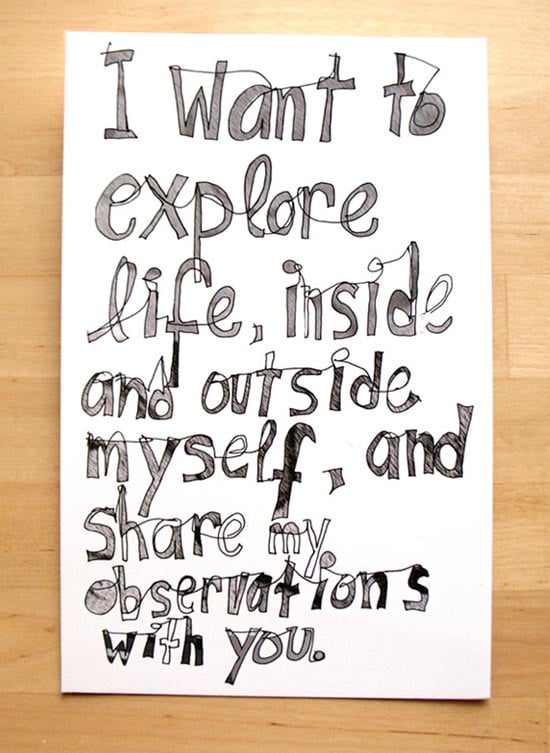 I want to
explore
life, inside
and outside
myself, and
share my
observations
with you.